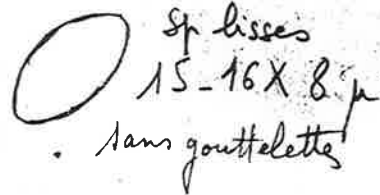 Sp lisses
15-16 X 8 µ
. sans gouttelettes